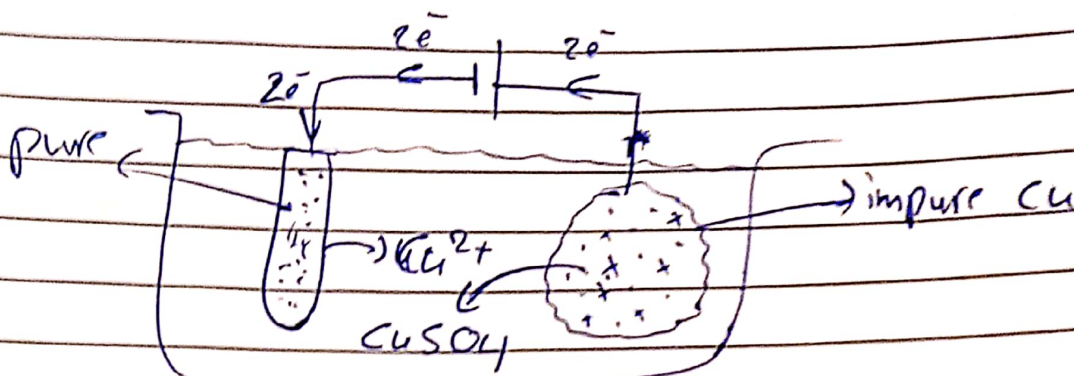 2e⁻ 2e⁻
2e⁻
pure
impure Cu
Cu²⁺
CuSO4